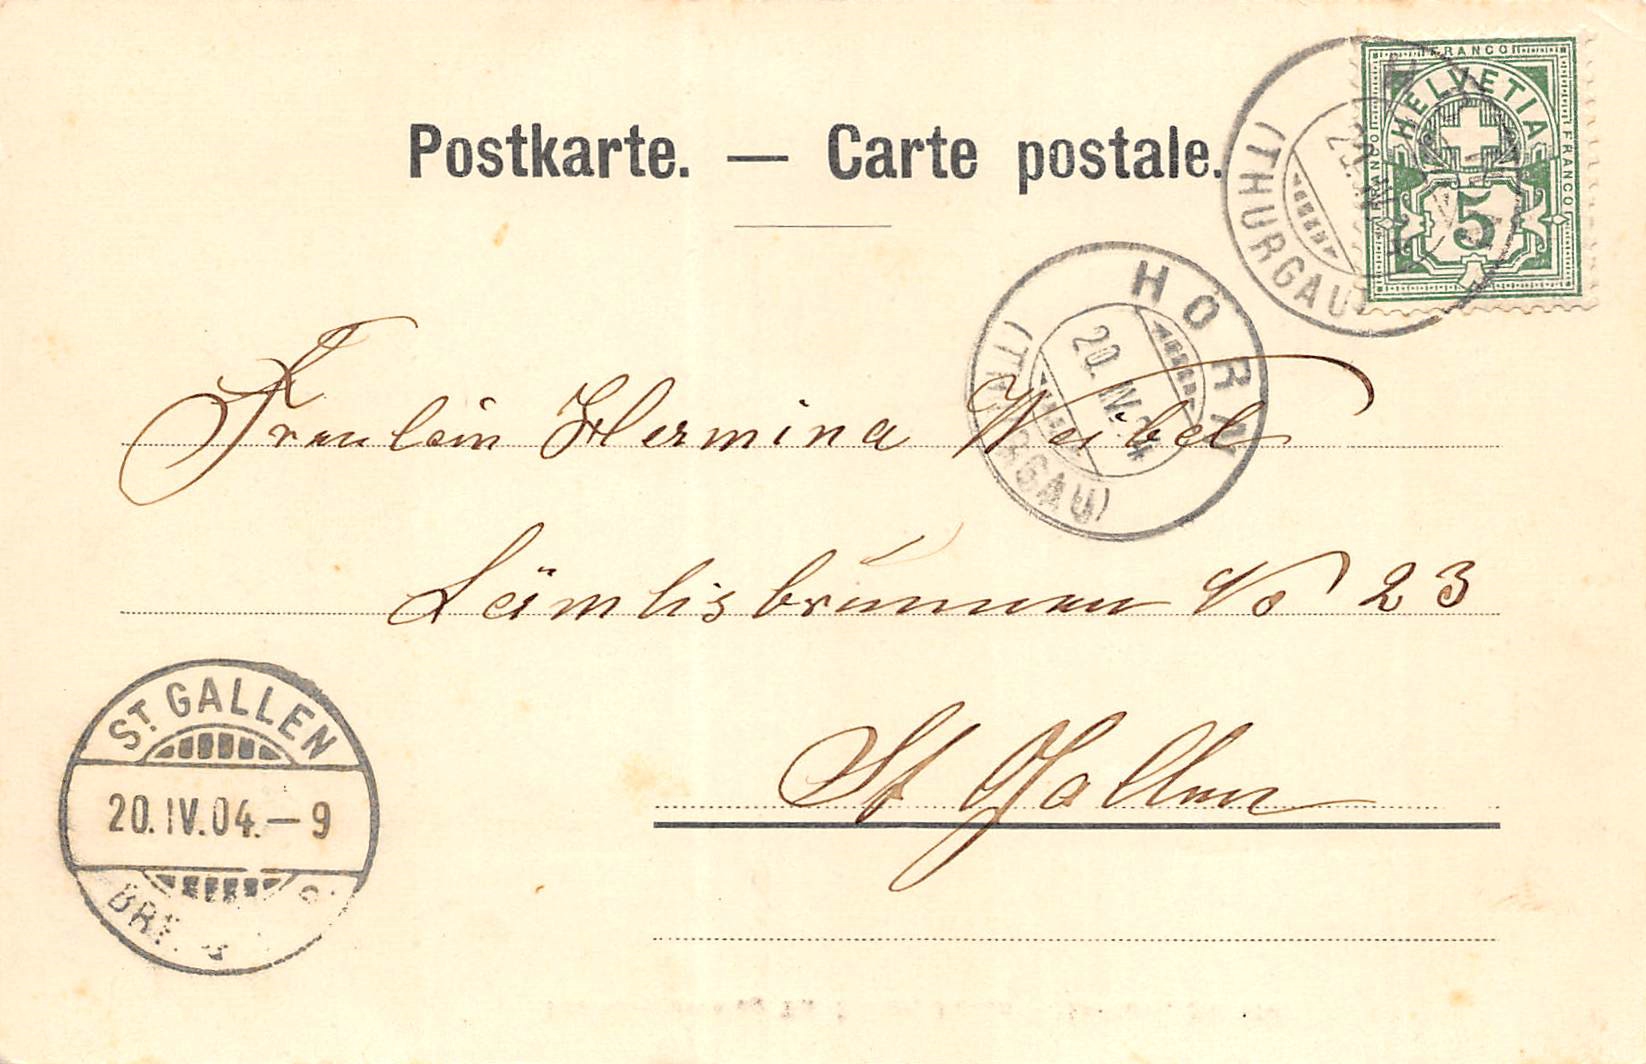 Postkarte. — Carte postale.
FRANCO
HELVETIA
FRANCO
FRANCO
5
(THURGAU)
HORN
20. IV. 04
(THURGAU)
Fraulein Hermina Weibel
Lämlisbrunnen No 23
St Gallen
ST. GALLEN
20. IV. 04. — 9